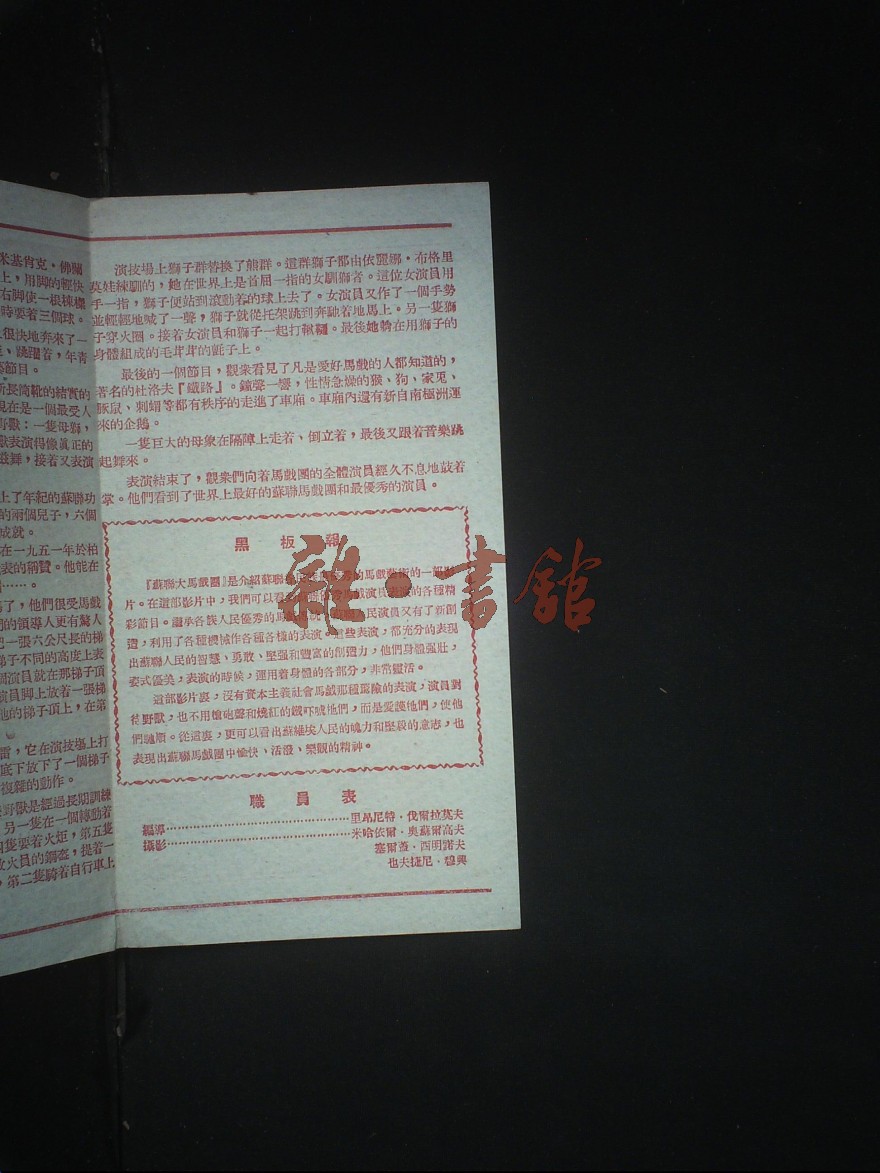 米基肖克·佛關
上，用脚的輕快
右脚使一根棟欄
時要着三個球。
很快地奔來了一
、跳躍着，年青
節目。
長筒靴的結實的
現在是一個最受人
野獸：一隻母獅，
獸表演得像眞正的
滋舞，接着又表演
上了年紀的蘇聯功
的兩個兒子，六個
成就。
在一九五一年於柏
表的稱賛。他能在
……。
馬了，他們很受馬戲
們的領導人更有驚人
把一張六公尺長的梯
梯子不同的高度上表
個演員就在那梯子頂
演員脚上放着一張梯
他的梯子頂上，在第
雷，它在演技塲上打
底下放下了一個梯子
複雜的動作。
野獸是經過長期訓練
另一隻在一個轉動着
隻要着火炬，第五隻
火員的鋼盔，提着一
，第二隻騎着自行車上
演技塲上獅子群替換了熊群。這群獅子都由依麗娜·布格里
莫娃練馴的，她在世界上是首屈一指的女馴獅者。這位女演員用
手一指，獅子便站到滾動着的球上去了。女演員又作了一個手勢
並輕輕地喊了一聲，獅子就從托架跳到奔馳着地馬上。另一隻獅
子穿火圈。接着女演員和獅子一起打鞦韆。最後她躺在用獅子的
身體組成的毛茸茸的氈子上。
最後的一個節目，觀衆看見了凡是愛好馬戲的人都知道的，
著名的杜洛夫『鐵路』。鐘聲一響，性情急燥的猴、狗、家兎、
豚鼠、刺蝟等都有秩序的走進了車廂。車廂內還有新自南極洲運
來的企鵝。
一隻巨大的母象在隔障上走着、倒立着，最後又跟着音樂跳
起舞來。
表演結束了，觀衆們向着馬戲團的全體演員經久不息地鼓着
掌。他們看到了世界上最好的蘇聯馬戲團和最優秀的演員。
黑板報
『蘇聯大馬戲團』是介紹蘇聯的馬戲藝術的一部影
片。在這部影片中，我們可以看馬戲演員表演的各種精
彩節目。繼承各族人民優秀的馬民演員又有了新創
造，利用了各種機械作各種各樣的表演。這些表演，都充分的表現
出蘇聯人民的智慧、勇敢、堅强和豐富的創造力，他們身體强壯，
姿式優美，表演的時候，運用着身體的各部分，非常靈活。
這部影片裏，沒有資本主義社會馬戲那種冒險的表演，演員對
待野獸，也不用槍砲聲和燒紅的鐵吓唬牠們，而是愛護牠們，使他
們馴順。從這裏，更可以看出蘇維埃人民的魄力和堅毅的意志，也
表現出蘇聯馬戲團中愉快、活潑、樂觀的精神。
職員表
編導……里昂尼特·伐爾拉莫夫
攝影……米哈依爾·奥蘇爾高夫
塞爾蓋·西明諾夫
也夫捷尼·穆興
雜·書館